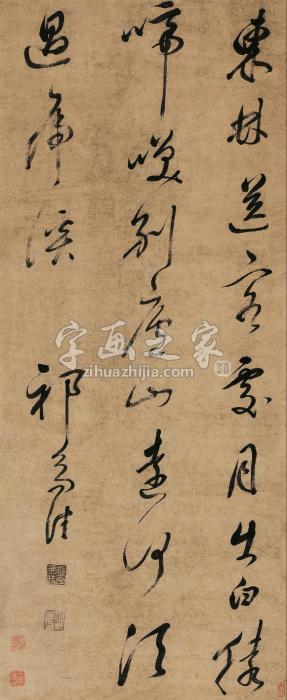 東林送客處月出白猿
啼咲別廬山遠何須
過虎溪
祁豸佳
字画之家
zihuazhijia.com